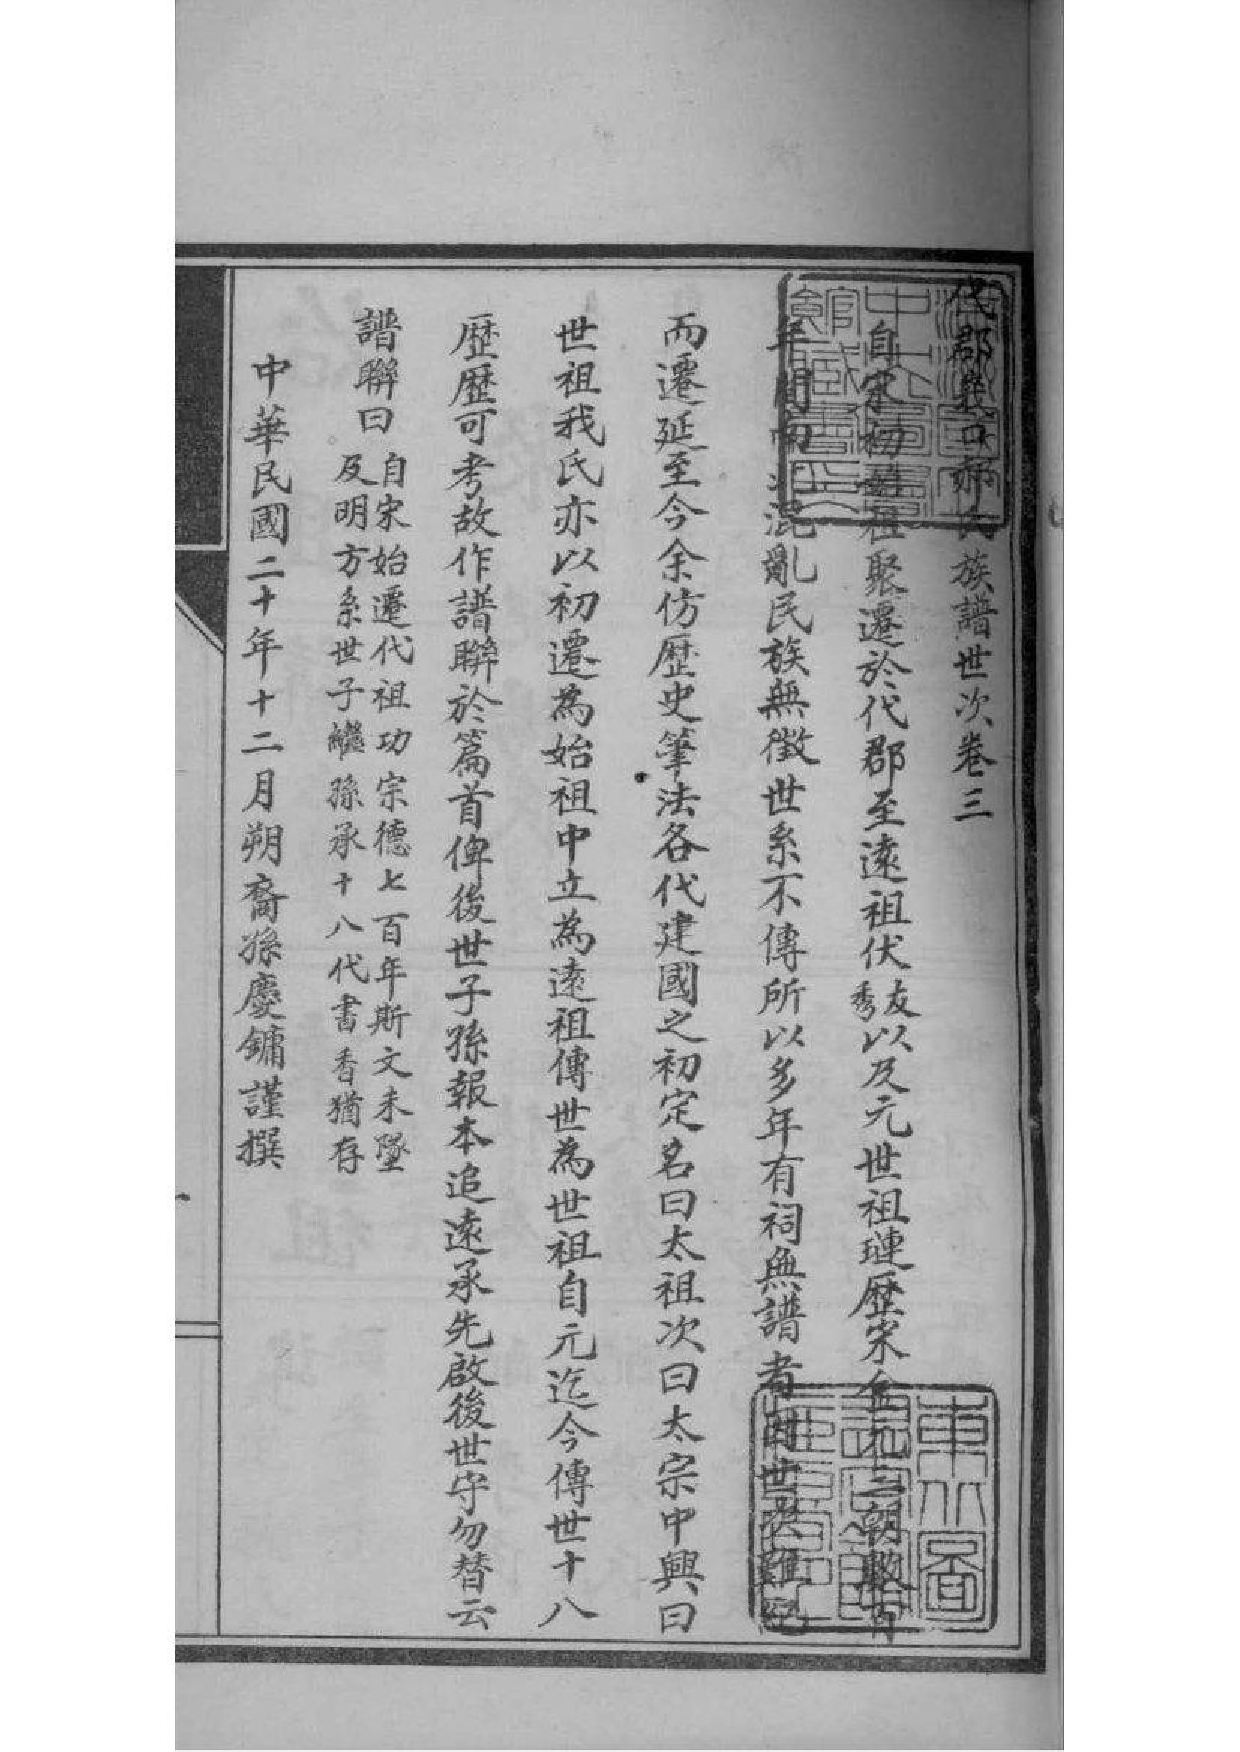 代郡義口郝氏族譜世次卷三
自宋初始祖聚遷於代郡至遠祖伏友秀以及元世祖璉歷宋金元三朝數百
年間兩混亂民族無徵世系不傳所以多年有祠無譜者因世次難
而遷延至今余仿歷史筆法各代建國之初定名曰太祖次曰太宗中興曰
世祖我氏亦以初遷為始祖中立為遠祖傳世為世祖自元迄今傳世十八
歷歷可考故作譜聯於篇首俾後世子孫報本追遠承先啟後世守勿替云
譜聯曰
自宋始遷代祖功宗德七百年斯文未墜
及明方系世子繼孫承十八代書香猶存
中華民國二十年十二月朔裔孫慶鏞謹撰